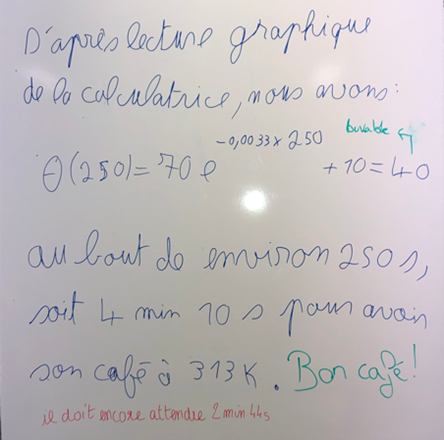 D'après lecture graphique
de la calculatrice, nous avons:
buvable
θ(250) = 70 e^-0,0033 x 250 + 10 = 40
au bout de environ 250 s,
soit 4 min 10 s pour avoir
son café à 313 K. Bon café!
il doit encore attendre 2 min 44s